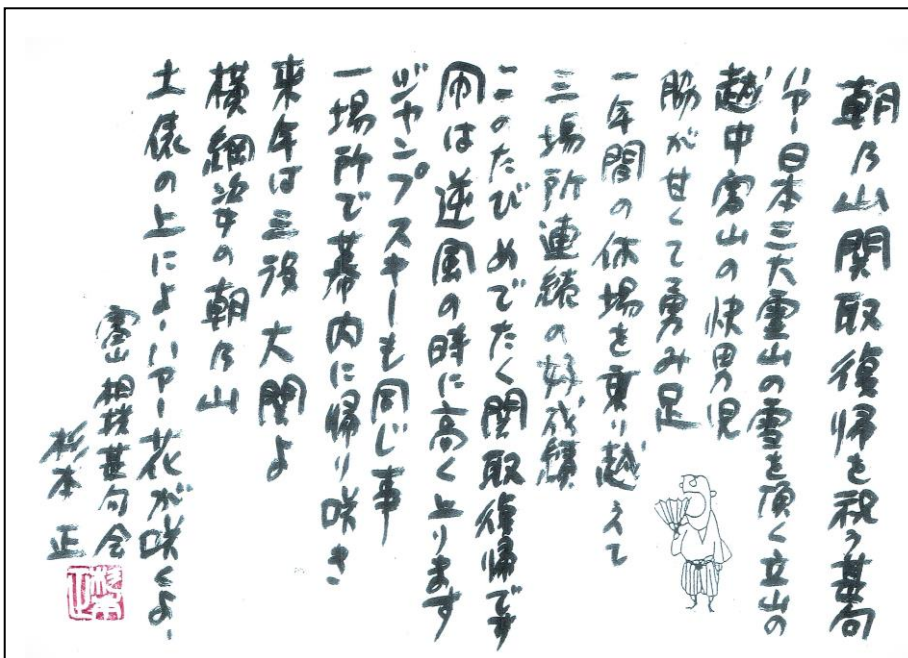 朝乃山関取復帰を祝う甚句
ハアー日本三大霊山の雪を頂く立山の
越中富山の快男児
脇が甘くて勇み足
一年間の休場を乗り越えて
三場所連続の好成績
このたびめでたく関取復帰です
凧は逆風の時に高く上ります
ジャンプスキーも同じ事
一場所で幕内に帰り咲き
来年は三役 大関よ
横綱姿の朝乃山
土俵の上によーハアー花が咲くよー
富山相撲甚句会
杉本 正